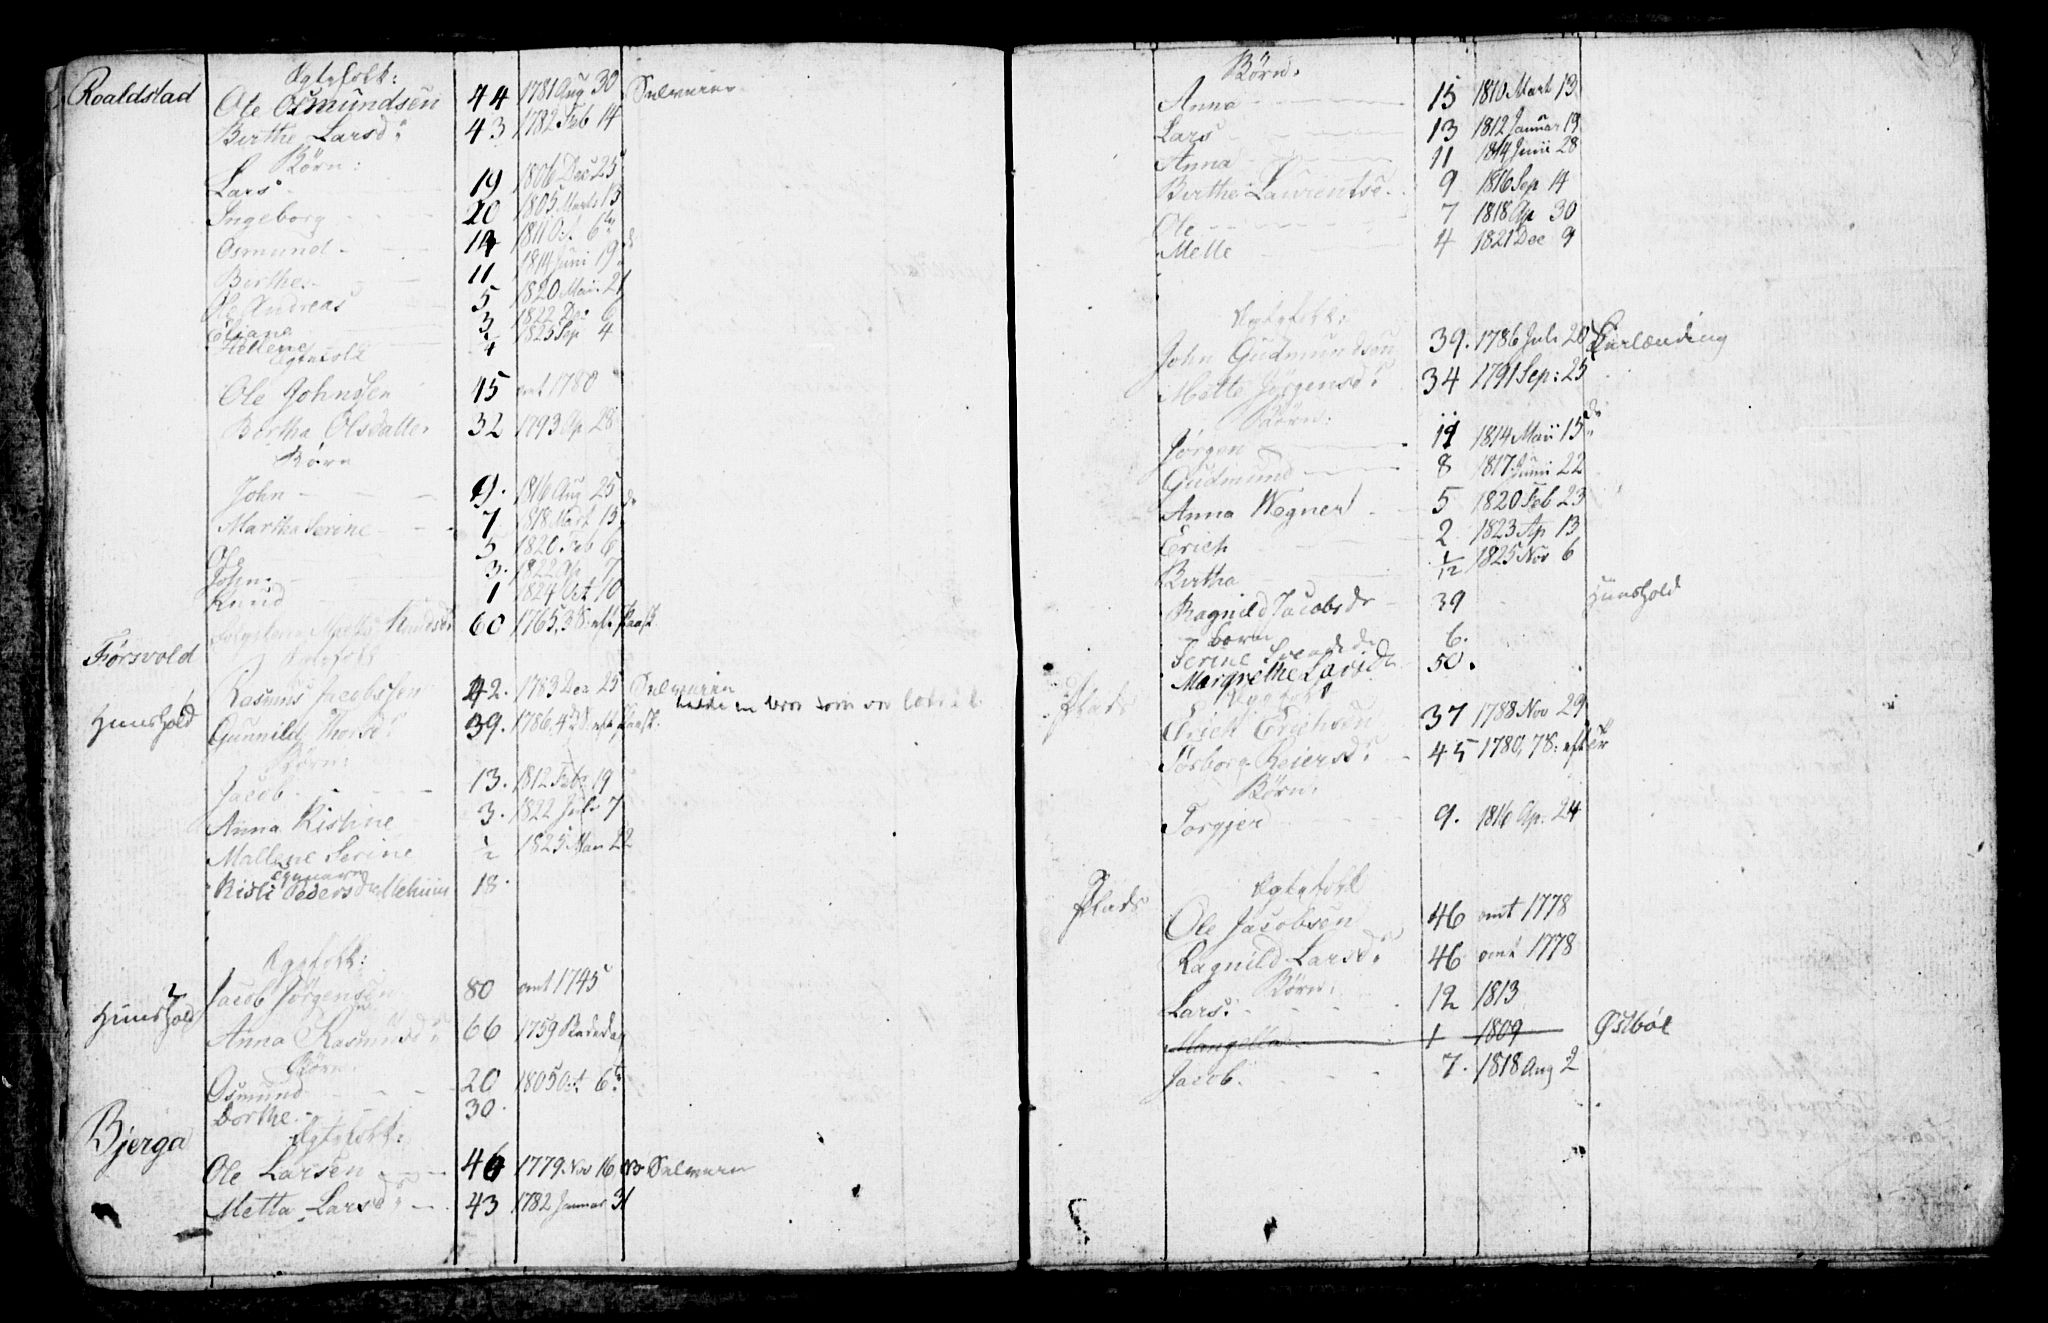 Roaldstad Egtefolk:
Ole Osmundsen 44 1781 Aug 30 Selveier
Birthe Larsd: 43 1782 Feb 14
Børn:
Lars 19 1806 Dec 25
Ingeborg 20 1805 Marts 13
Osmund 14 1811 Oct 6
Birthe 11 1814 Juni 19
Ole Andreas 5 1820 Maii 21
Eliana 3 1822 Dec 6
1825 Sep 4
Egtefolk
Ole Johnsen 45 omt 1780
Bertha Olsdatter 32 1793 Ap 28
Børn
John 9. 1816 Aug 25
Martha Serine 7 1818 Mart 15
Ole 5 1820 Feb 6
John 3. 1822 Ap 7
Knud 1 1824 Oct 10
60 1765, 3 S: eft Paask
Førsvold Egtefolk
Rasmus Jacobsen 42. 1783 Dec 25 Selveier
Hunshold Gunnild Thorsd: 39. 1786, 4 S: eft Paask.
Børn:
Jacob 13. 1812 Feb 19
Anna Kistine 3. 1822 Juli 7
Mallene Serine ½ 1825 Mar 22
Kisti Pedersd Mehuus 18.
Egtefolk:
Jacob Jørgensen 80 omt 1745
Hunshold
Anna Rasmusd: 66 1759 Bededag
Børn:
Osmund 20 1805 Oct 6
Dorthe 30.
Bjerga Egtefolk:
Ole Larsen 46 1779 Nov 16 Selveier
Metta Larsd: 43 1782 Januar 31
Børn:
Anna 15 1810 Mart 13
Lars 13 1812 Januar 19
Anna 11 1814 Junii 28
Birthe Laurentse 9 1816 Sep 14
Ole 7 1818 Ap 30
Mette 4 1821 Dec 9
Egtefolk:
John Gudmundson 39. 1786 Juli 20 Leilænding
Mette Jørgensd: 34 1791 Sep: 25
Børn:
Jørgen 11 1814 Maii 15
Gudmund 8 1817 Juni 22
Anna Wegner 5 1820 Feb 23
Erich 2 1823 Ap 13
Bertha 1/12 1825 Nov 6
Ragnild Jacobsdr 39 Hunshold
børn
Serine 6.
Margrethe Larsdr 50.
Plads Egtefolk
Erich Erichsen 37 1788 Nov 29
Torborg Reiersd: 45 1780, 7 S: eft
Børn:
Torgjer 9. 1816 Ap. 24
Plads Egtefolk
Ole Jacobsen 46 omt 1778
Ragnild Larsd: 46 omt 1778
Børn:
Lars: 12 1813
Mangella 1 1809 Østbøe
Jacob. 7. 1818 Aug 2